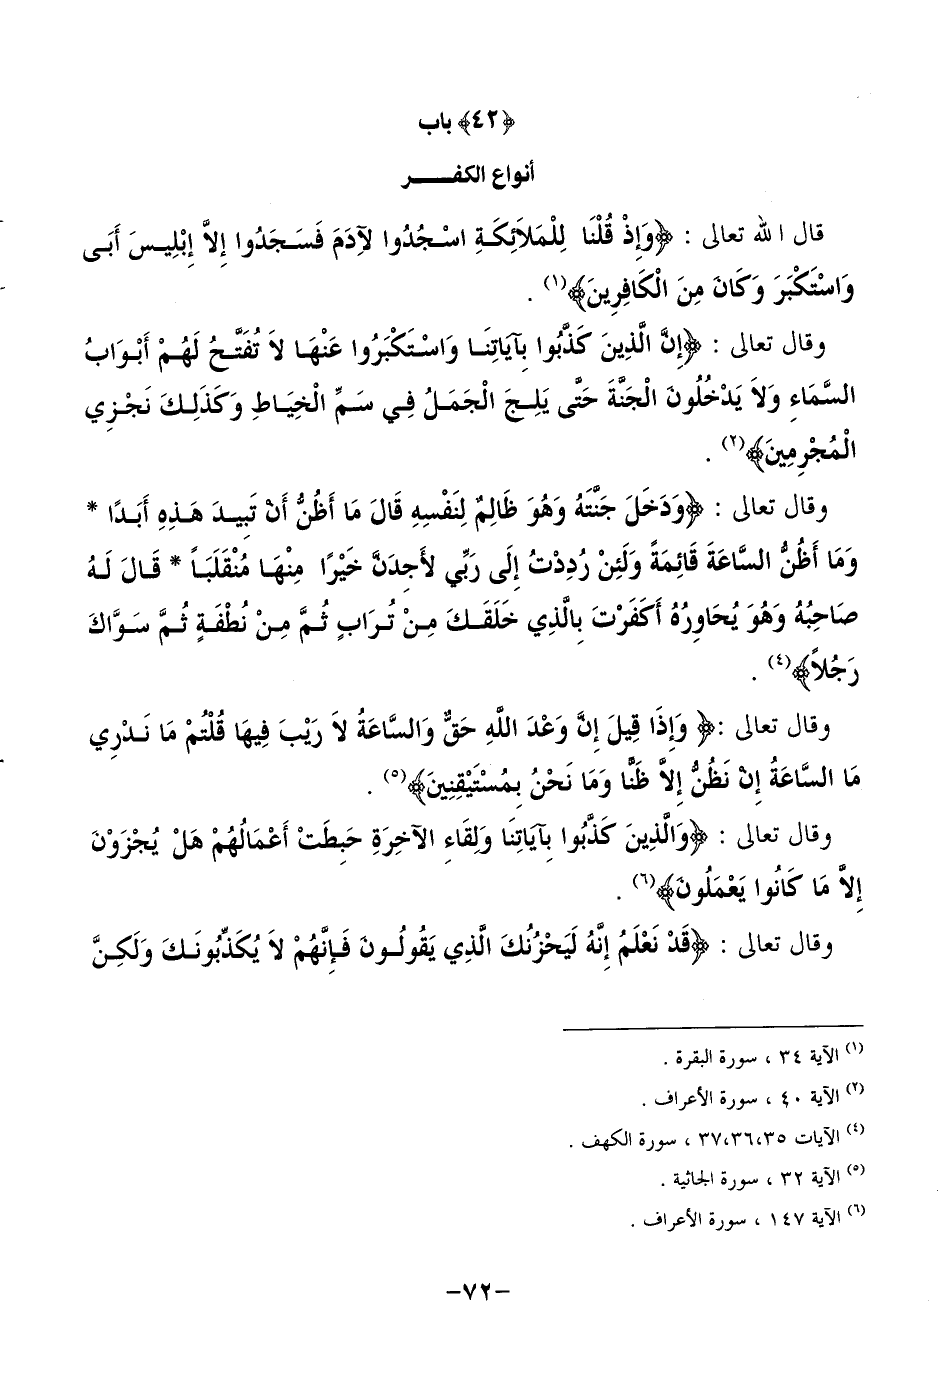 ﴿٤٢﴾ باب
أنواع الكفـــر
قال الله تعالى : ﴿وَإِذْ قُلْنَا لِلْمَلَائِكَةِ اسْجُدُوا لِآدَمَ فَسَجَدُوا إِلاَّ إِبْلِيسَ أَبَى
وَاسْتَكْبَرَ وَكَانَ مِنَ الْكَافِرِينَ﴾(١) .
وقال تعالى : ﴿إِنَّ الَّذِينَ كَذَّبُوا بِآيَاتِنَا وَاسْتَكْبَرُوا عَنْهَا لاَ تُفَتَّحُ لَهُمْ أَبْوَابُ
السَّمَاءِ وَلاَ يَدْخُلُونَ الْجَنَّةَ حَتَّى يَلِجَ الْجَمَلُ فِي سَمِّ الْخِيَاطِ وَكَذَلِكَ نَجْزِي
الْمُجْرِمِينَ﴾(٢) .
وقال تعالى : ﴿وَدَخَلَ جَنَّتَهُ وَهُوَ ظَالِمٌ لِنَفْسِهِ قَالَ مَا أَظُنُّ أَنْ تَبِيدَ هَذِهِ أَبَدًا *
وَمَا أَظُنُّ السَّاعَةَ قَائِمَةً وَلَئِنْ رُدِدْتُ إِلَى رَبِّي لأَجِدَنَّ خَيْرًا مِنْهَا مُنْقَلَبَاً * قَالَ لَهُ
صَاحِبُهُ وَهُوَ يُحَاوِرُهُ أَكَفَرْتَ بِالَّذِي خَلَقَكَ مِنْ تُرَابٍ ثُمَّ مِنْ نُطْفَةٍ ثُمَّ سَوَّاكَ
رَجُلاً﴾(٤) .
وقال تعالى :﴿ وَإِذَا قِيلَ إِنَّ وَعْدَ اللَّهِ حَقٌّ وَالسَّاعَةُ لاَ رَيْبَ فِيهَا قُلْتُمْ مَا نَدْرِي
مَا السَّاعَةُ إِنْ نَظُنُّ إِلاَّ ظَنًّا وَمَا نَحْنُ بِمُسْتَيْقِنِينَ﴾(٥) .
وقال تعالى : ﴿وَالَّذِينَ كَذَّبُوا بِآيَاتِنَا وَلِقَاءِ الآخِرَةِ حَبِطَتْ أَعْمَالُهُمْ هَلْ يُجْزَوْنَ
إِلاَّ مَا كَانُوا يَعْمَلُونَ﴾(٦) .
وقال تعالى : ﴿قَدْ نَعْلَمُ إِنَّهُ لَيَحْزُنُكَ الَّذِي يَقُولُونَ فَإِنَّهُمْ لاَ يُكَذِّبُونَكَ وَلَكِنَّ
(١) الآية ٣٤ ، سورة البقرة .
(٢) الآية ٤٠ ، سورة الأعراف .
(٤) الآيات ٣٧،٣٦،٣٥ ، سورة الكهف .
(٥) الآية ٣٢ ، سورة الجاثية .
(٦) الآية ١٤٧ ، سورة الأعراف .
-٧٢-